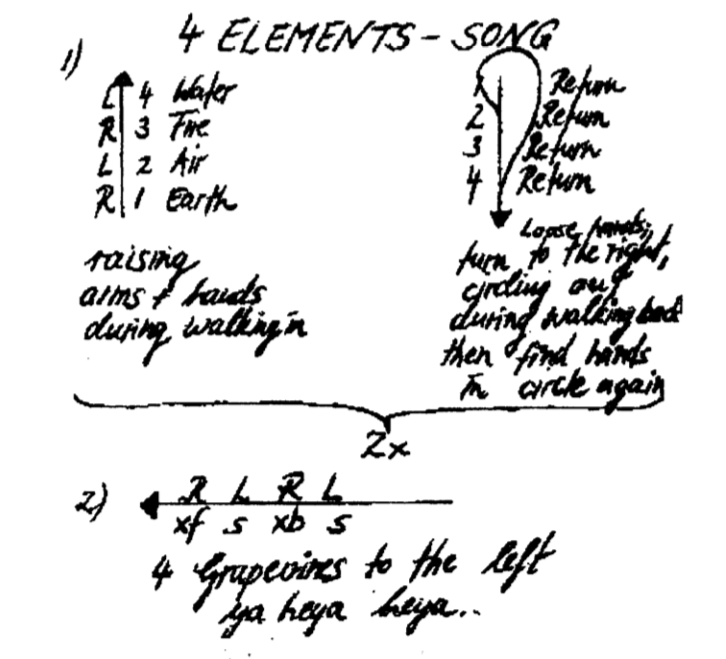 4 ELEMENTS - SONG
1)
L 4 Water
R 3 Fire
L 2 Air
R 1 Earth
raising
arms + hands
during walking in
1 Return
2 Return
3 Return
4 Return
Loose hands;
turn to the right,
circling out
during walking back
then find hands
in circle again
2x
2)
R L R L
xf s xb s
4 Grapevines to the left
ya heya heya..